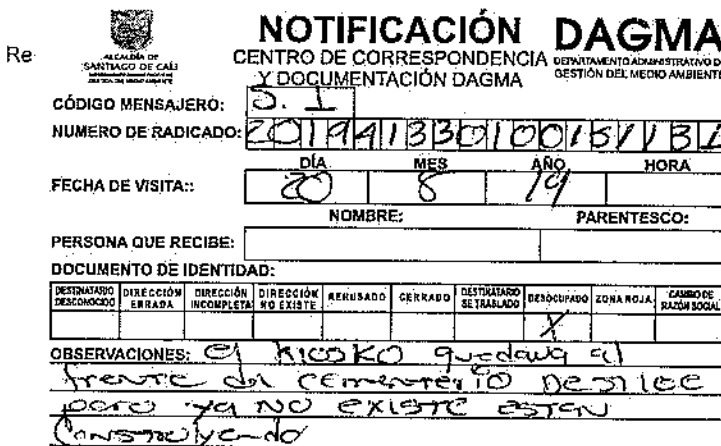 Re
ALCALDÍA DE
SANTIAGO DE CALI
NOTIFICACIÓN
CENTRO DE CORRESPONDENCIA
Y DOCUMENTACIÓN DAGMA
DAGMA
DEPARTAMENTO ADMINISTRATIVO DE
GESTIÓN DEL MEDIO AMBIENTE
CÓDIGO MENSAJERO: J. I
NUMERO DE RADICADO:
DÍA MES AÑO HORA
FECHA DE VISITA:: 20 8 19
NOMBRE: PARENTESCO:
PERSONA QUE RECIBE:
DOCUMENTO DE IDENTIDAD:
DESTINATARIO DESCONOCIDO DIRECCIÓN ERRADA DIRECCIÓN INCOMPLETA DIRECCIÓN NO EXISTE REHUSADO CERRADO DESTINATARIO SE TRASLADO DESOCUPADO ZONA ROJA CAMBIO DE RAZÓN SOCIAL
X
OBSERVACIONES: el kiosko quedava al
frente del cementerio
pero ya no existe estan
construyendo